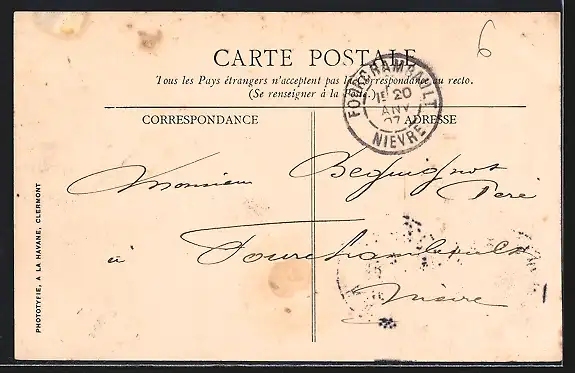 6
CARTE POSTALE
Tous les Pays étrangers n'acceptent pas la Correspondance au recto.
(Se renseigner à la Poste.)
FOURCHAMBAULT
1E 20
ANV
07
NIEVRE
CORRESPONDANCE
ADRESSE
Monsieur Beguignot
Père
à Fourchambault
Nièvre
PHOTOTYPIE, A LA HAVANE, CLERMONT